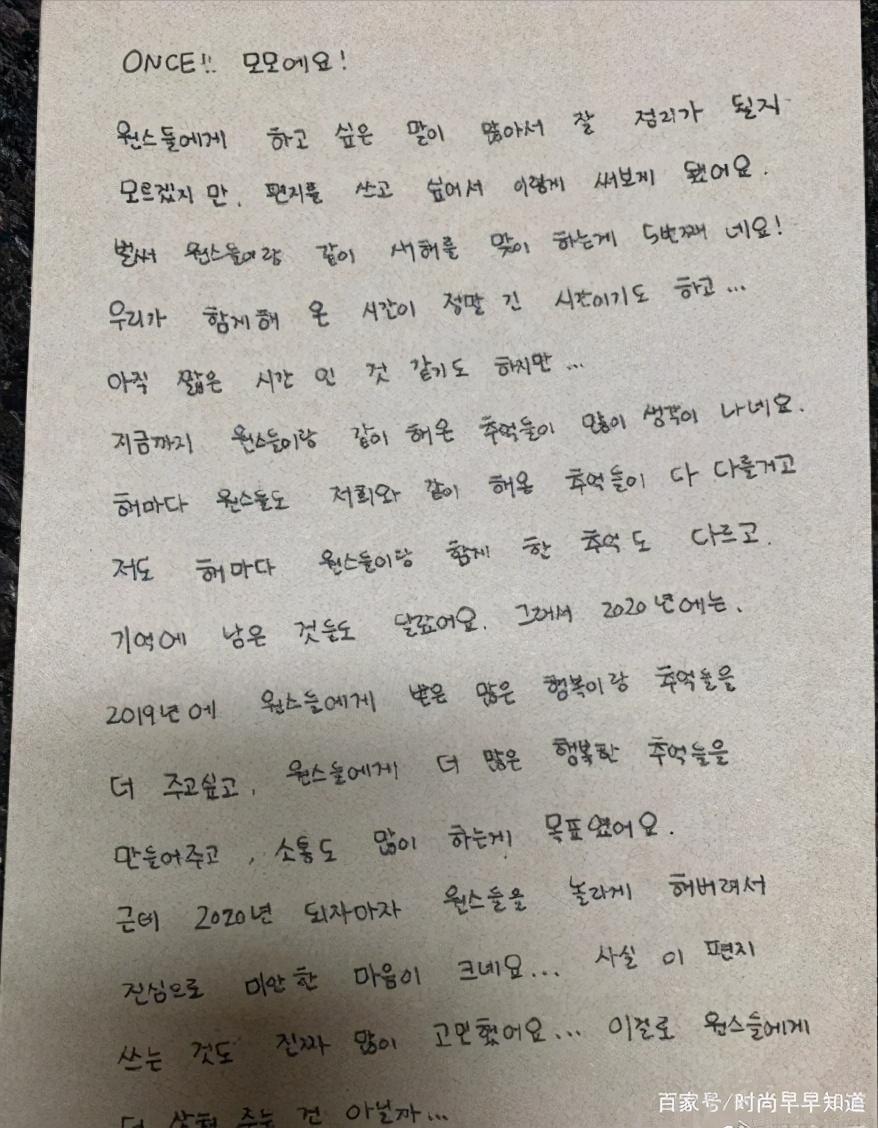 ONCE!! 모모에요!
원스들에게 하고 싶은 말이 많아서 잘 정리가 될지
모르겠지만, 편지를 쓰고 싶어서 이렇게 써보게 됐어요.
벌써 원스들이랑 같이 새해를 맞이 하는게 5번째 네요!
우리가 함께해 온 시간이 정말 긴 시간이기도 하고...
아직 짧은 시간 인 것 같기도 하지만...
지금까지 원스들이랑 같이 해온 추억들이 많이 생각이 나네요.
해마다 원스들도 저희와 같이 해온 추억들이 다 다를거고
저도 해마다 원스들이랑 함께 한 추억도 다르고.
기억에 남은 것들도 달랐어요. 그래서 2020년에는,
2019년에 원스들에게 받은 많은 행복이랑 추억들을
더 주고싶고, 원스들에게 더 많은 행복한 추억들을
만들어주고, 소통도 많이 하는게 목표였어요.
근데 2020년 되자마자 원스들을 놀라게 해버려서
진심으로 미안한 마음이 크네요... 사실 이 편지
쓰는 것도 진짜 많이 고민했어요... 이걸로 원스들에게
더 상처 주는 건 아닐까...
百家号/时尚早早知道